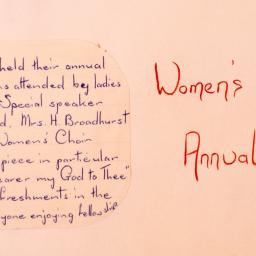 held their annual
s attended by ladies
Special speaker
d, Mrs. H. Broadhurst
Women's Choir
piece in particular
earer my God to Thee"
freshments in the
yone enjoying fellowship
Women's
Annual